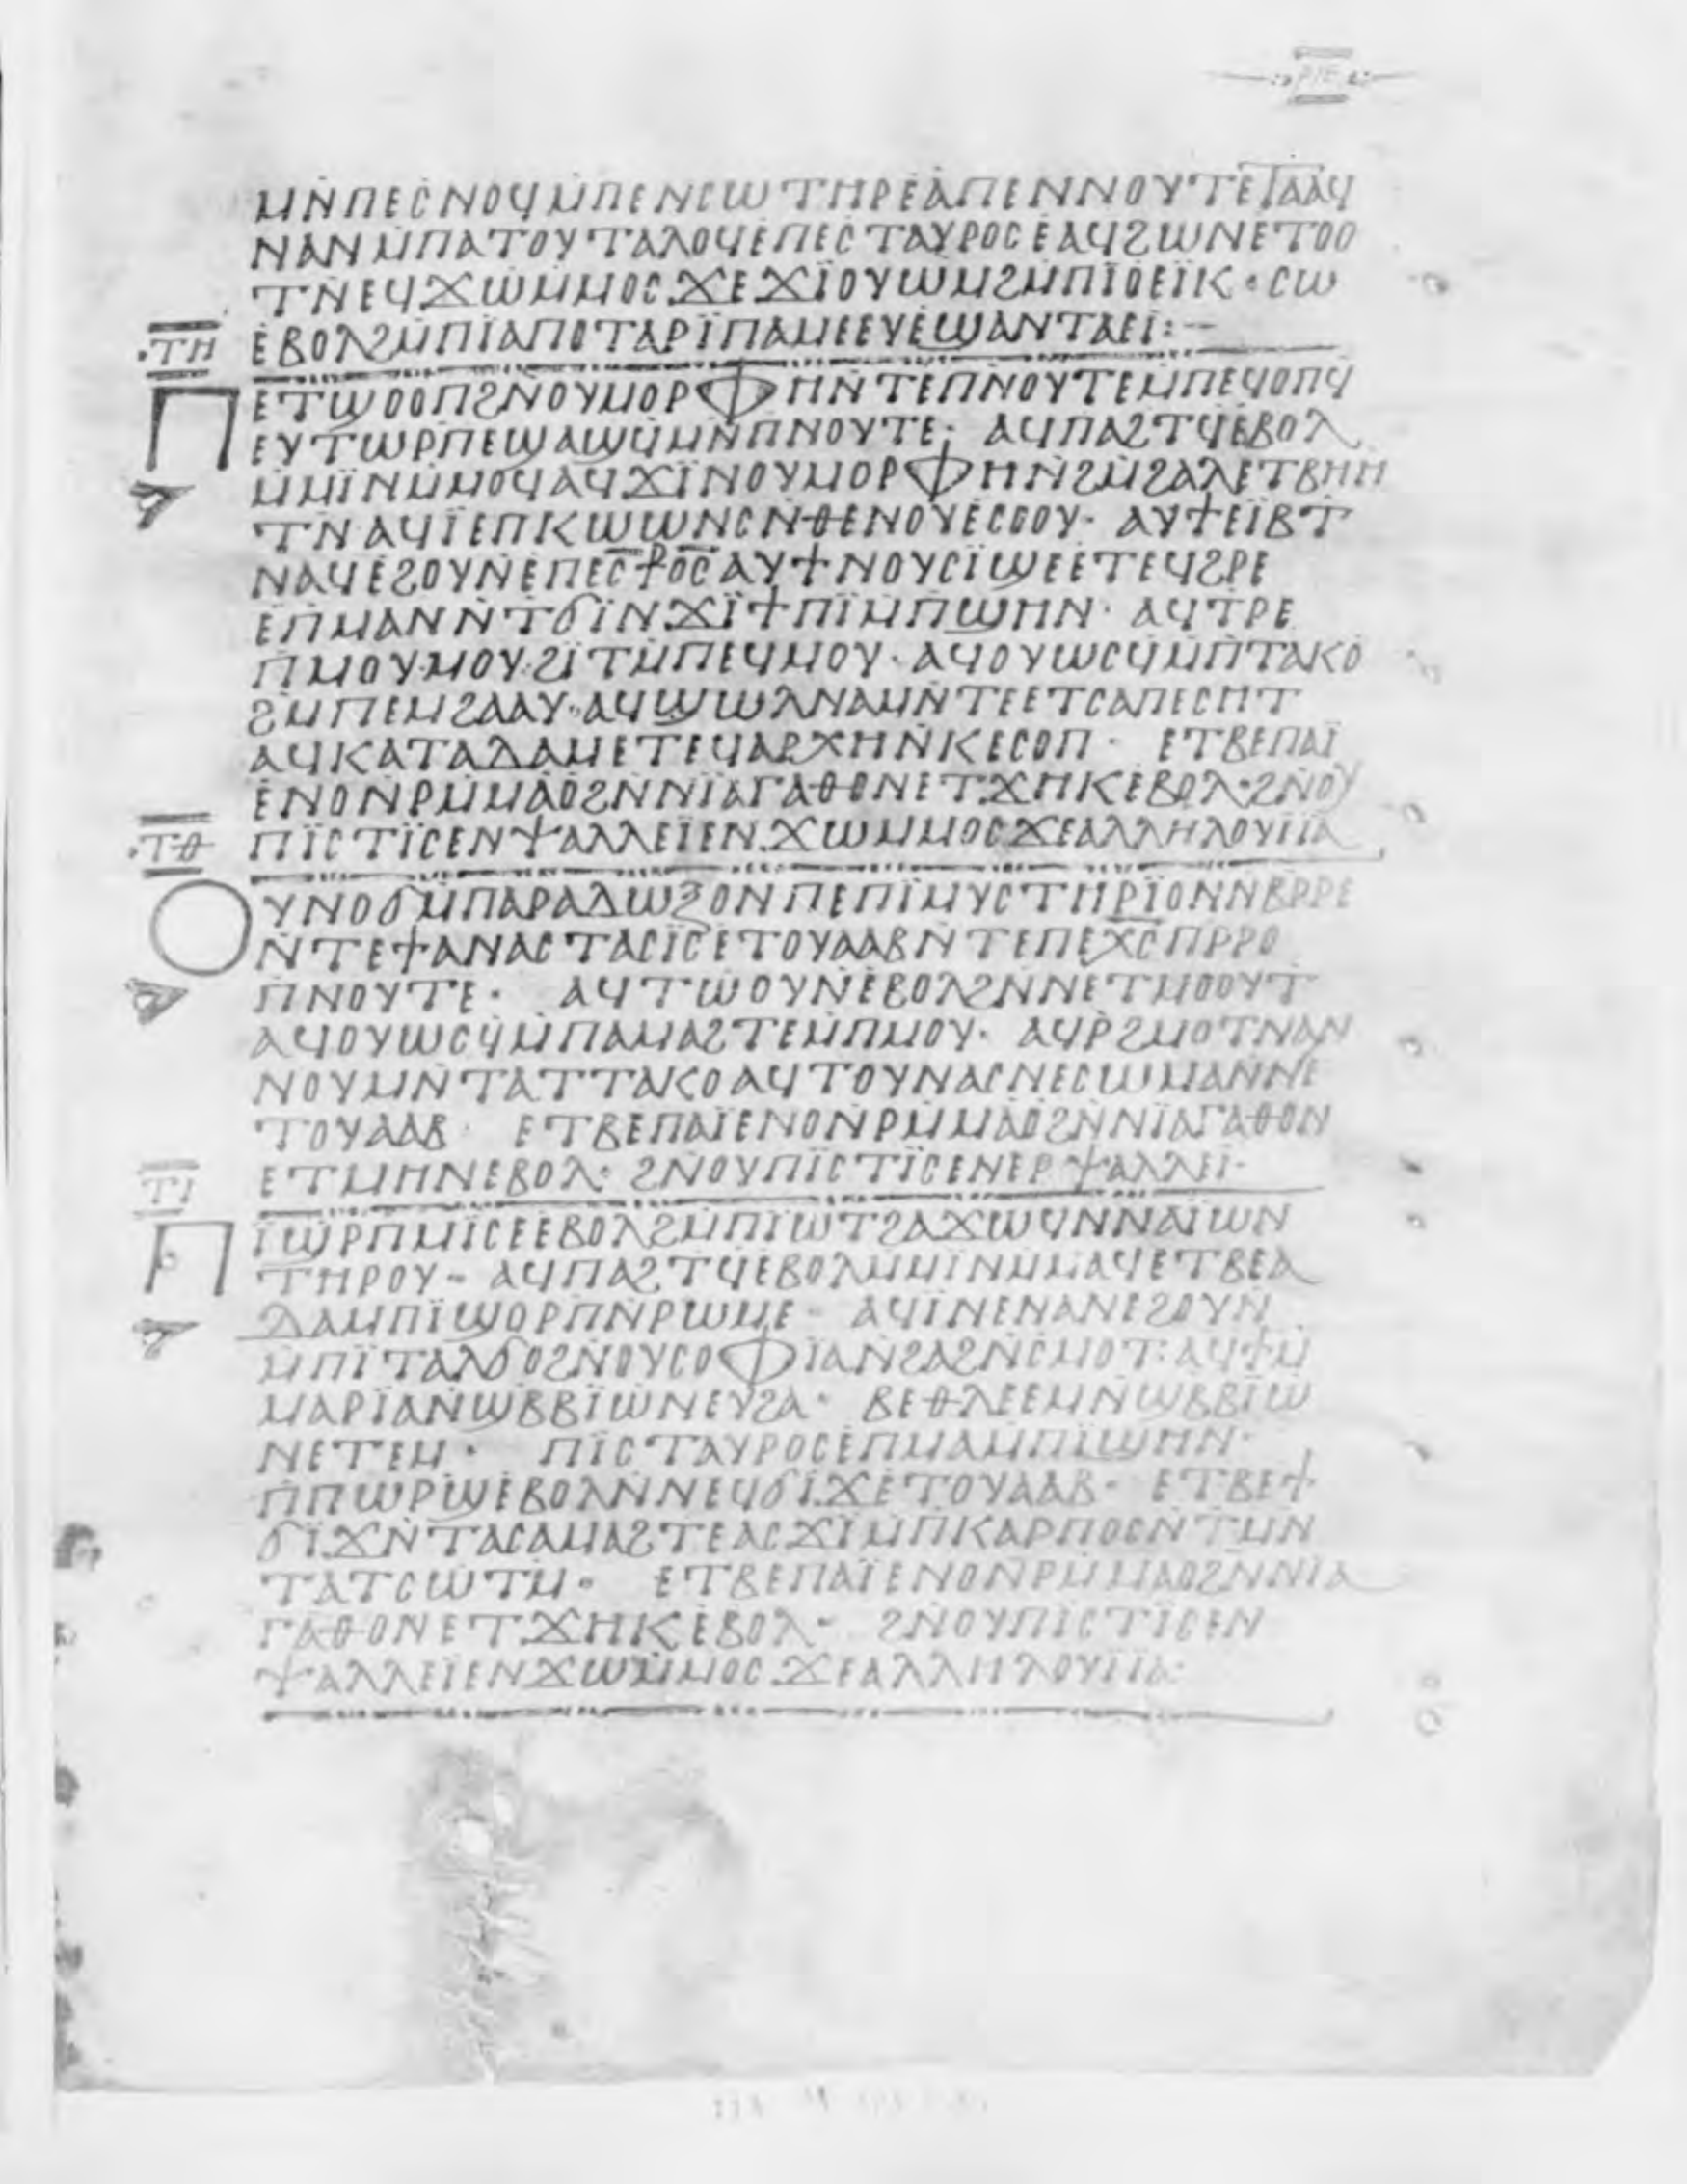 ⲣⲓⲉ
ⲙⲛ̇ⲡⲉⲥ̇ⲛⲟϥⲙ̇ⲡⲉⲛⲥⲱⲧⲏⲣⲉ̇ⲁⲡⲉⲛⲛⲟⲩⲧⲉⲧⲁⲁϥ
ⲛⲁⲛⲙ̇ⲡⲁⲧⲟⲩⲧⲁⲗⲟϥⲉ̇ⲡⲉⲥⲧⲁⲩⲣⲟⲥⲉⲁϥϩⲱⲛⲉⲧⲟⲟ
ⲧⲛ̇ⲉϥϫⲱⲙ̇ⲙⲟⲥϫⲉϫⲓ̈ⲟⲩⲱⲙϩⲙ̇ⲡⲓ̈ⲟⲉⲓ̈ⲕ · ⲥⲱ
ⲧⲏ ⲉ̇ⲃⲟⲗϩⲙ̇ⲡⲓ̈ⲁⲡⲟⲧⲁⲣⲓ̈ⲡⲁⲙⲉⲉⲩⲉ̇ϣⲁⲛⲧⲁⲉⲓ̈:–
ⲡⲉⲧϣⲟⲟⲡϩⲛ̇ⲟⲩⲙⲟⲣⲫⲏⲛ̇ⲧⲉⲡⲛⲟⲩⲧⲉⲙ̇ⲡⲉϥⲟⲡϥ
ⲉⲩⲧⲱⲣⲡⲉϣⲁϣϥ̇ⲙⲛ̇ⲡⲛⲟⲩⲧⲉ; ⲁϥⲡⲁϩⲧϥ̇ⲉ̇ⲃⲟⲗ
ⲙ̇ⲙⲓ̈ⲛⲙ̇ⲙⲟϥⲁϥϫⲓ̈ⲛⲟⲩⲙⲟⲣⲫⲏⲛ̇ϩⲙ̇ϩⲁⲗⲉⲧⲃⲏⲏ
ⲧⲛ̇ⲁϥⲓ̈ⲉⲡⲕⲱⲱⲛⲥⲛ̇ⲑⲉⲛⲟⲩⲉ̇ⲥⲟⲟⲩ· ⲁⲩϯⲉⲓ̈ⲃⲧ
ⲛⲁϥⲉ̇ϩⲟⲩⲛⲉ̇ⲡⲉⲥ̅ⳁⲟ̅ⲥ̅ⲁⲩϯⲛⲟⲩⲥⲓ̈ϣⲉⲉ̇ⲧⲉϥϩⲣⲉ
ⲉ̇ⲡⲙⲁⲛⲛ̇ⲧϭⲓ̈ⲛϫⲓ̈ϯⲡⲓ̈ⲙ̇ⲡϣⲏⲛ· ⲁϥⲧⲣⲉ
ⲡⲙⲟⲩ·ⲙⲟⲩ·ϩⲓ̈ⲧⲙ̇ⲡⲉϥⲙⲟⲩ· ⲁϥⲟⲩⲱⲥϥ̇ⲙ̇ⲡⲧⲁⲕⲟ
ϩⲙ̇ⲡⲉⲙϩⲁⲁⲩ· ⲁϥϣⲱⲗⲛⲁⲙⲛ̇ⲧⲉⲉⲧⲥⲁⲡⲉⲥⲏⲧ
ⲁϥⲕⲁⲧⲁⲇⲁⲙⲉⲧⲉϥⲁⲣⲭⲏⲛ̇ⲕⲉⲥⲟⲡ· ⲉⲧⲃⲉⲡⲁⲓ̈
ⲉ̇ⲛⲟⲛ̇ⲣⲙ̇ⲙⲁⲟ̇ϩⲛ̇ⲛⲓ̈ⲁⲅⲁⲑⲟⲛⲉⲧϫⲏⲕⲉ̇ⲃⲟⲗ·ϩⲛ̇ⲟⲩ
ⲧⲑ ⲡⲓ̈ⲥⲧⲓ̈ⲥⲉⲛⲯⲁⲗⲗⲉⲓ̈ⲉⲛϫⲱⲙ̇ⲙⲟⲥϫⲉⲁⲗⲗⲏⲗⲟⲩⲓ̈ⲁ
ⲟⲩⲛⲟϭⲙ̇ⲡⲁⲣⲁⲇⲱⲝⲟⲛⲡⲉⲡⲓ̈ⲙⲩⲥⲧⲏⲣⲓ̈ⲟⲛⲛⲃⲣⲣⲉ
ⲛ̇ⲧⲉϯⲁⲛⲁⲥⲧⲁⲥⲓ̈ⲥⲉⲧⲟⲩⲁⲁⲃⲛ̇ⲧⲉⲡⲉⲭ̅ⲥ̅ⲡⲣⲣⲟ
ⲡⲛⲟⲩⲧⲉ· ⲁϥⲧⲱⲟⲩⲛⲉ̇ⲃⲟⲗϩⲛ̇ⲛⲉⲧⲙⲟⲟⲩⲧ
ⲁϥⲟⲩⲱⲥϥ̇ⲙ̇ⲡⲁⲙⲁϩⲧⲉⲙ̇ⲡⲙⲟⲩ· ⲁϥⲣ̇ϩⲙⲟⲧⲛⲁⲛ
ⲛⲟⲩⲙⲛ̇ⲧⲁⲧⲧⲁⲕⲟⲁϥⲧⲟⲩⲛⲁⲥⲛⲉⲥⲱⲙⲁⲛ̇ⲛⲉ
ⲧⲟⲩⲁⲁⲃ· ⲉⲧⲃⲉⲡⲁⲓ̈ⲉⲛⲟⲛ̇ⲣⲙ̇ⲙⲁⲟ̇ϩⲛ̇ⲛⲓ̈ⲁⲅⲁⲑⲟⲛ
ⲧⲓ ⲉⲧⲙⲏⲛⲉⲃⲟⲗ: ϩⲛ̇ⲟⲩⲡⲓ̈ⲥⲧⲓ̈ⲥⲉⲛⲉⲣⲯⲁⲗⲗⲉⲓ̈·
ⲡⲓ̈ϣⲣⲡⲙⲓ̈ⲥⲉⲉ̇ⲃⲟⲗϩⲙ̇ⲡⲓ̈ⲱⲧϩⲁϫⲱϥⲛ̇ⲛⲁⲓ̈ⲱⲛ
ⲧⲏⲣⲟⲩ· ⲁϥⲡⲁϩⲧϥ̇ⲉⲃⲟⲗⲙ̇ⲙⲓ̈ⲛⲙ̇ⲙⲁϥⲉⲧⲃⲉⲁ
ⲇⲁⲙⲡⲓ̈ϣⲟⲣⲡⲛ̇ⲣⲱⲙⲉ· ⲁϥⲓ̈ⲛⲉⲛⲁⲛⲉϩⲟⲩⲛ
ⲙ̇ⲡⲓ̈ⲧⲁⲗϭⲟϩⲛ̇ⲟⲩⲥⲟⲫⲓ̈ⲁⲛ̇ϩⲁϩⲛ̇ⲥⲙⲟⲧ: ⲁϥϯⲙ̇
ⲙⲁⲣⲓ̈ⲁⲛ̇ϣⲃⲃⲓ̈ⲱⲛⲉⲩϩⲁ· ⲃⲉⲑⲗⲉⲉⲙⲛ̇ϣⲃⲃⲓ̈ⲱ
ⲛⲉⲧⲉⲙ· ⲡⲓ̈ⲥⲧⲁⲩⲣⲟⲥⲉ̇ⲡⲙⲁⲙ̇ⲡⲓ̈ϣⲏⲛ·
ⲡⲡⲱⲣϣⲉ̇ⲃⲟⲗⲛ̇ⲛⲉϥϭⲓ̈ϫⲉⲧⲟⲩⲁⲁⲃ· ⲉⲧⲃⲉϯ
ϭⲓ̈ϫⲛ̇ⲧⲁⲥⲁⲙⲁϩⲧⲉⲁⲥϫⲓ̈ⲙ̇ⲡⲕⲁⲣⲡⲟⲥⲛ̇ⲧⲙⲛ
ⲧⲁⲧⲥⲱⲧⲙ· ⲉⲧⲃⲉⲡⲁⲓ̈ⲉⲛⲟⲛ̇ⲣⲙ̇ⲙⲁⲟϩⲛ̇ⲛⲓ̈ⲁ
ⲅⲁⲑⲟⲛⲉⲧϫⲏⲕⲉ̇ⲃⲟⲗ· ϩⲛ̇ⲟⲩⲡⲓ̈ⲥⲧⲓ̈ⲥⲉⲛ
ⲯⲁⲗⲗⲉⲓ̈ⲉⲛϫⲱⲙ̇ⲙⲟⲥϫⲉⲁⲗⲗⲏⲗⲟⲩⲓ̈ⲁ: